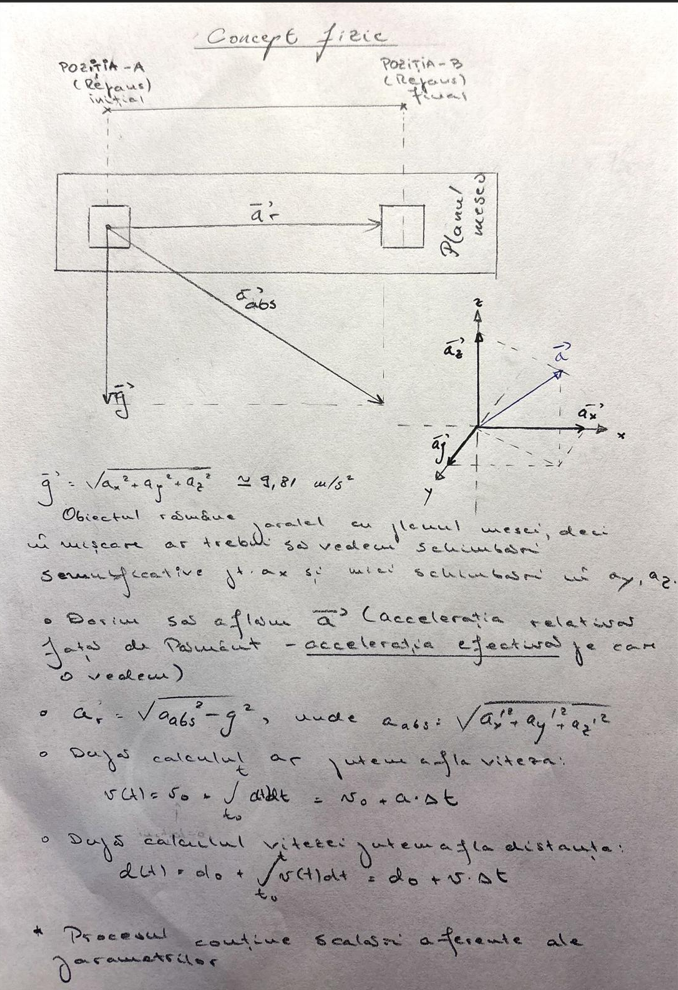 Concept fizic
POZIȚIA-A
(Repaus)
inițial
POZIȚIA-B
(Repaus)
final
a⃗r
Planul
mesei
a⃗abs
g⃗
z
a⃗z
a⃗
a⃗x
x
a⃗y
y
g⃗ = √ax²+ay²+az² ≃ 9,81 m/s²
Obiectul rămâne paralel cu planul mesei, deci
în mișcare ar trebui să vedem schimbări
semnificative pt. ax și mici schimbări în ay, az.
• Dorim să aflăm a⃗ (accelerația relativă
față de Pământ - accelerația efectivă pe care
o vedem)
• ar = √aabs² - g², unde aabs = √ax'²+ay'²+az'²
• După calculul ar putem afla viteza:
v(t) = v₀ + ∫t₀t a(t)dt = v₀ + a·Δt
• După calculul vitezei putem afla distanța:
d(t) = d₀ + ∫t₀t v(t)dt = d₀ + v·Δt
* Procesul conține scalări aferente ale
parametrilor